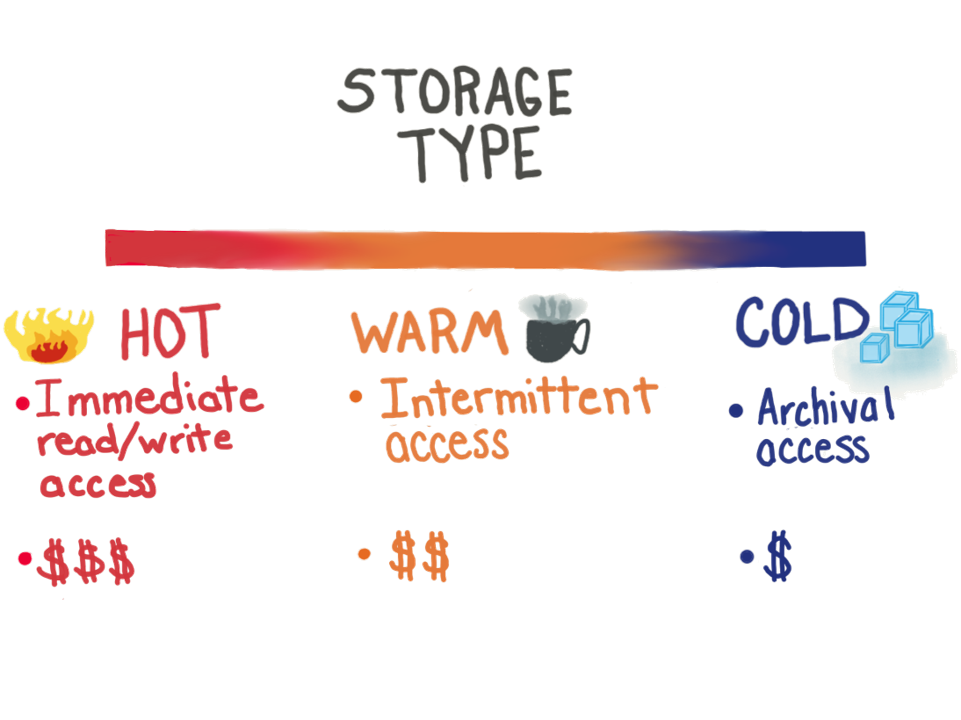 STORAGE
TYPE
HOT
• Immediate
read/write
access
• $$$
WARM
• Intermittent
access
• $$
COLD
• Archival
access
• $